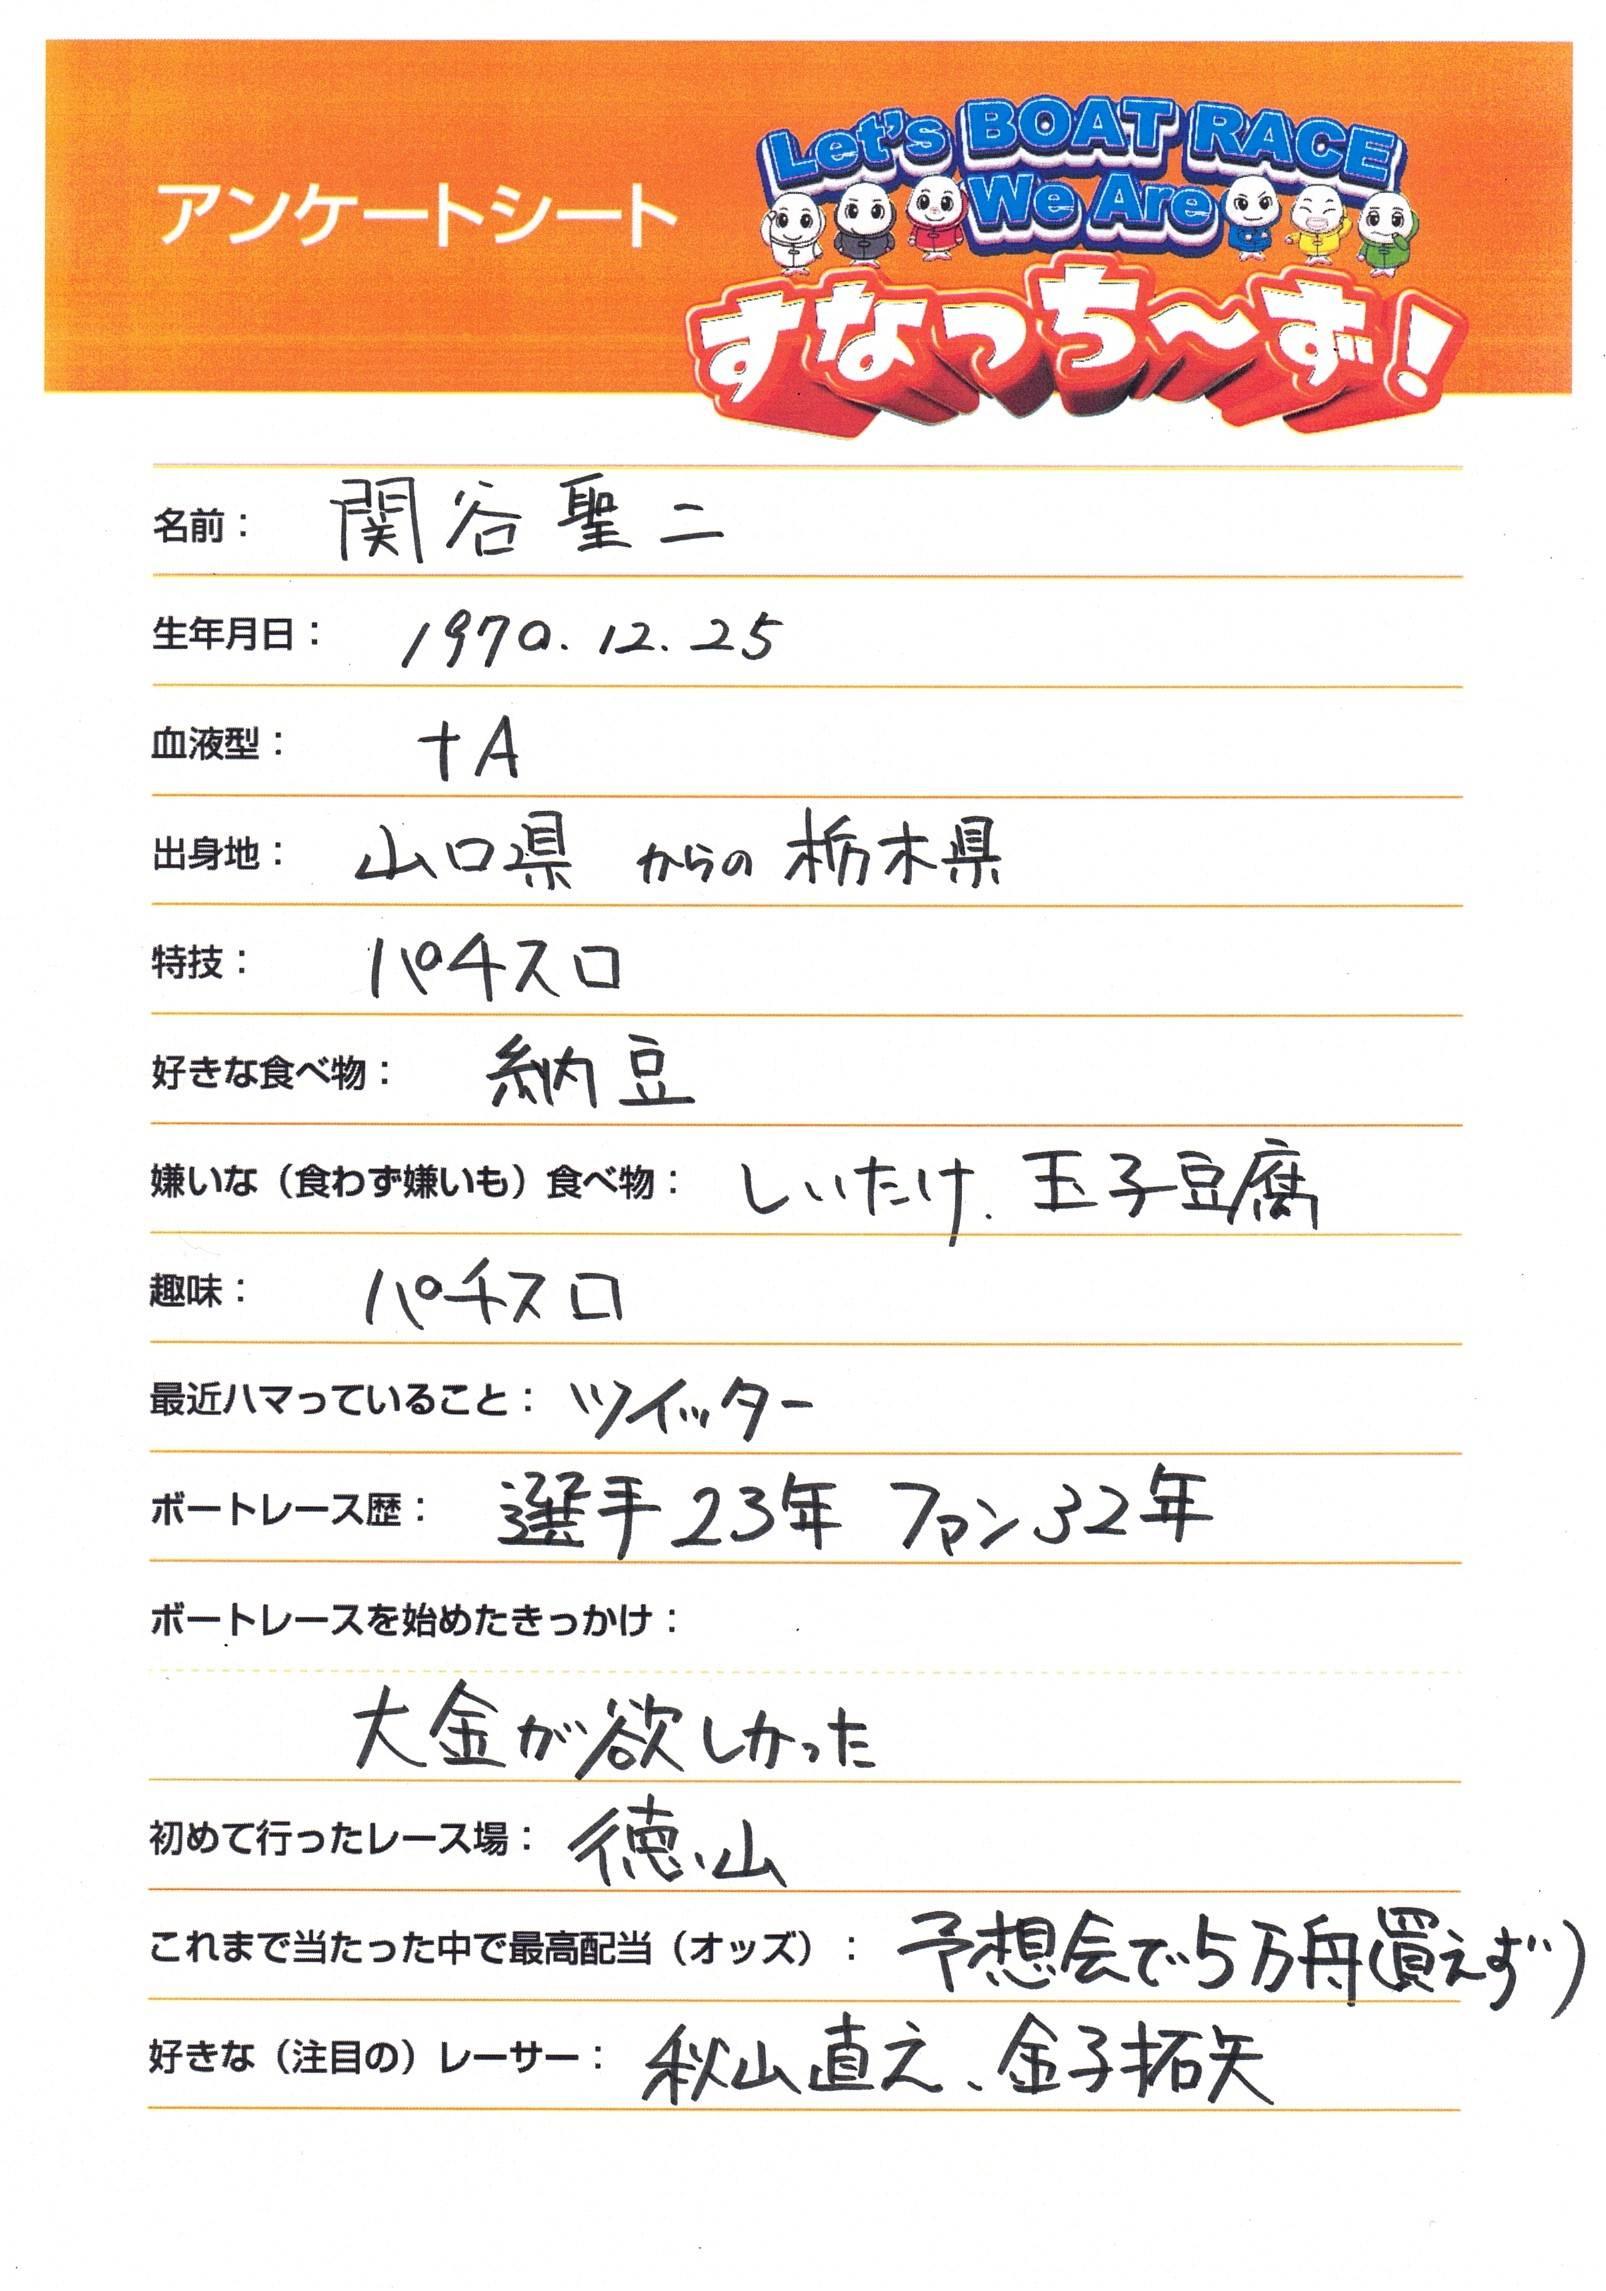 アンケートシート
Let's BOAT RACE
We Are
すなっち〜ず！
名前： 関谷聖二
生年月日： 1970.12.25
血液型： +A
出身地： 山口県 からの 栃木県
特技： パチスロ
好きな食べ物： 納豆
嫌いな（食わず嫌いも）食べ物： しいたけ、玉子豆腐
趣味： パチスロ
最近ハマっていること： ツイッター
ボートレース歴： 選手23年 ファン32年
ボートレースを始めたきっかけ：
大金が欲しかった
初めて行ったレース場： 徳山
これまで当たった中で最高配当（オッズ）： 予想会で5万舟(買えず)
好きな（注目の）レーサー： 秋山直之、金子拓矢